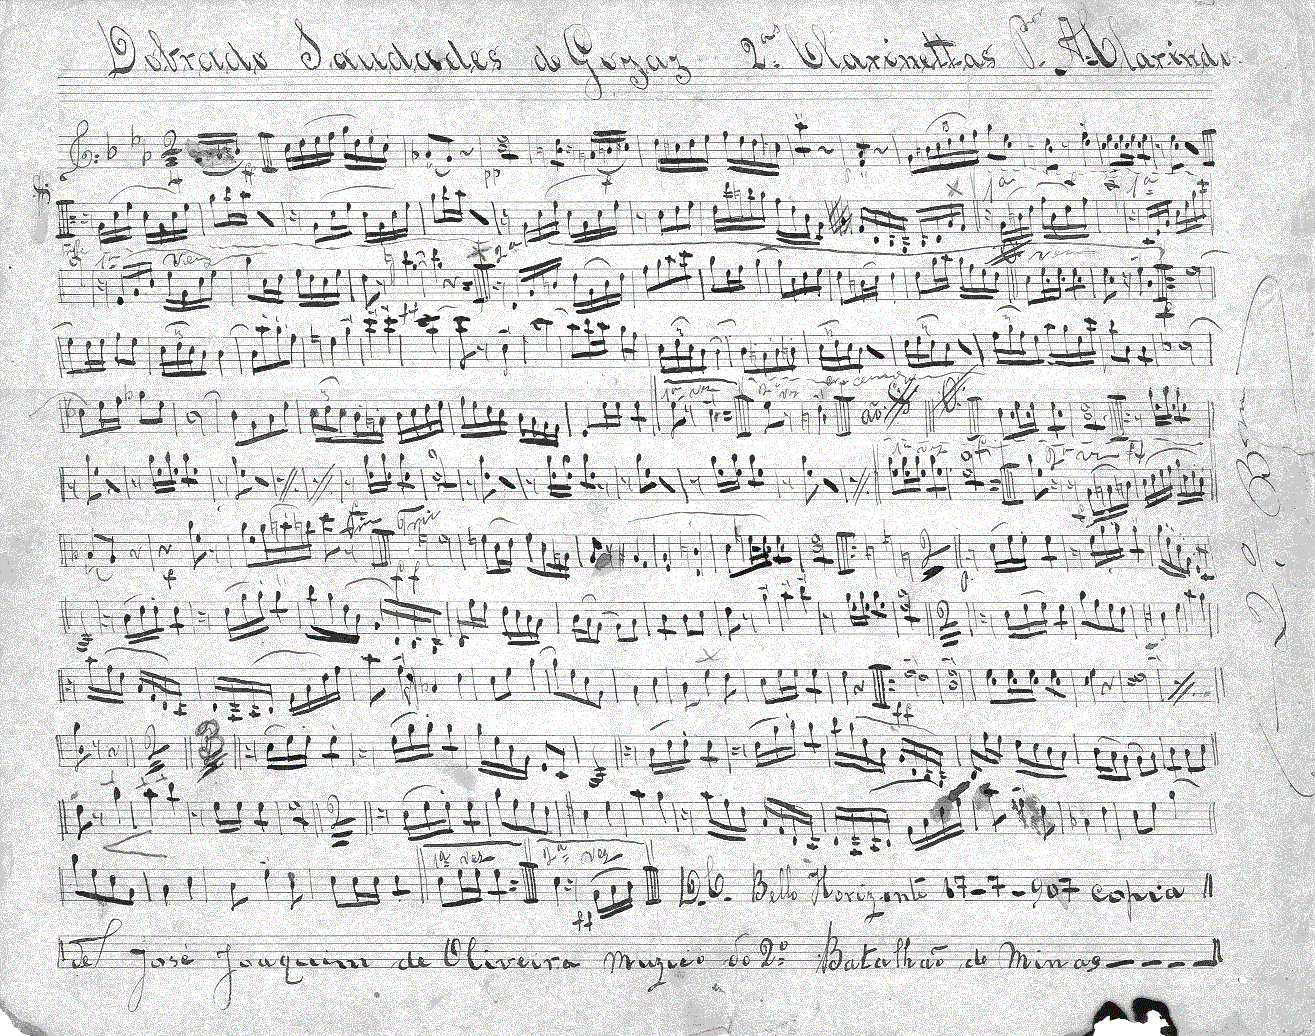 Dobrado Saudades de Goyaz 2.as Clarinettas Por A. Clarindo.
ff
pp
1a
1a
1a vez
2a
1a vez
2a vez
ao
1a vez
2a vez ff
Fim Trio
ff
ff
1a vez
2a vez
ff
D.C. Bello Horizonte 17-7-907 copia
de José Joaquim de Oliveira muzico do 2.o Batalhão de Minas
2o